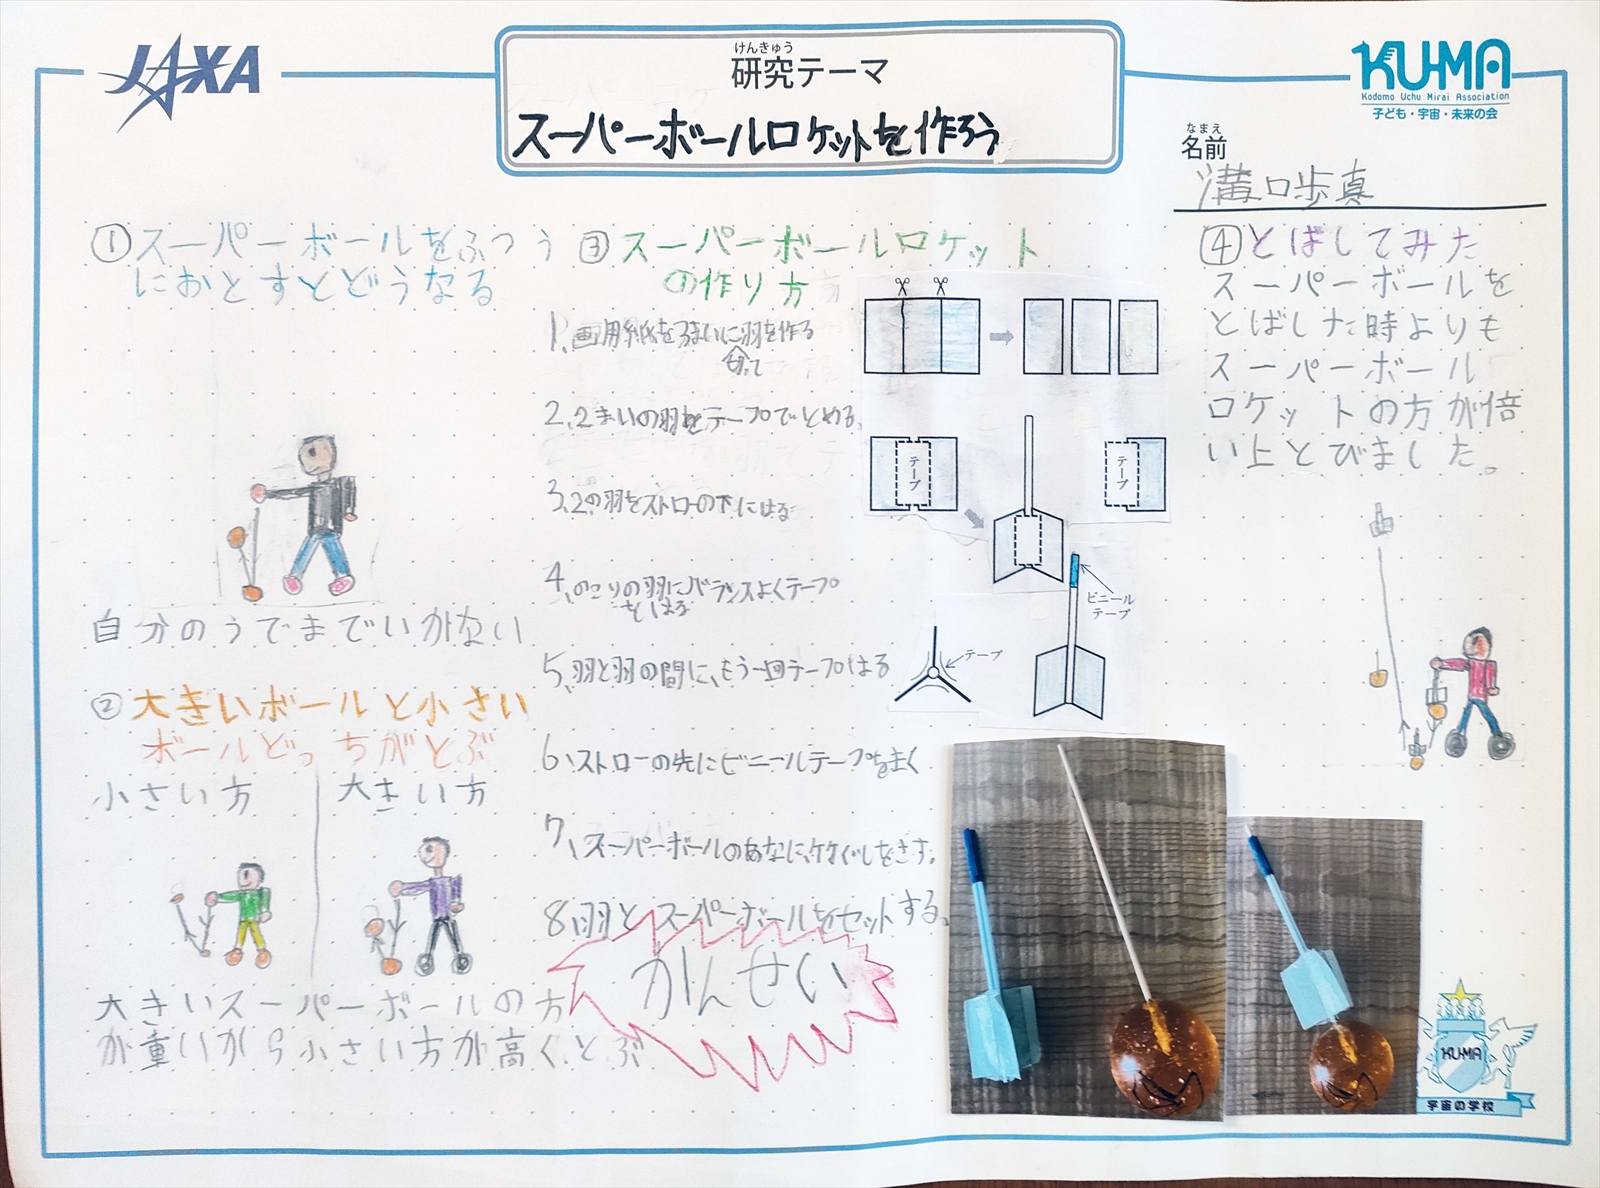 JAXA
けんきゅう
研究テーマ
スーパーボールロケットを作ろう
KU-MA
Kodomo Uchu Mirai Association
子ども・宇宙・未来の会
なまえ
名前
溝口歩真
①スーパーボールをふつう
におとすとどうなる
自分のうでまでいかない
②大きいボールと小さい
ボールどっちがとぶ
小さい方
大きい方
大きいスーパーボールの方
が重いから小さい方が高くとぶ
③スーパーボールロケット
の作り方
1、画用紙を3まいに羽を作る
切って
2、2まいの羽をテープでとめる。
3、2の羽をストローの下にはる
4、のこりの羽にバランスよくテープ
をはる
5、羽と羽の間に、もう一回テープはる
6、ストローの先にビニールテープをまく
7、スーパーボールのあなに、竹ぐしをさす。
8、羽とスーパーボールをセットする。
かんせい
テープ
テープ
ビニール
テープ
テープ
④とばしてみた
スーパーボールを
とばした時よりも
スーパーボール
ロケットの方が倍
い上とびました。
KU-MA
宇宙の学校